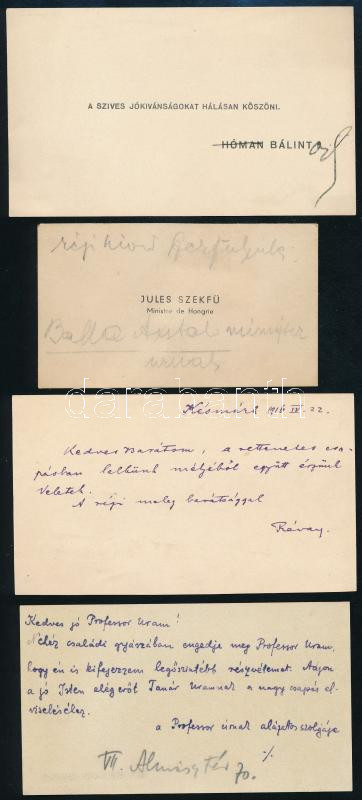 A SZIVES JÓKIVÁNSÁGOKAT HÁLÁSAN KÖSZÖNI.
HÓMAN BÁLINT
régi hívó Szekfü Gyula
JULES SZEKFÜ
Ministre de Hongrie
Balla Antal miniszter
úrnak
darabanth
Késmárk 1918 IV. 22.
Kedves Barátom, a rettenetes csa-
pásban lelkünk mélyéből együtt érzünk
Veletek.
A régi meleg barátsággal
Révay
Kedves jó Professor Uram!
Nehéz családi gyászában engedje meg Professor Uram,
hogy én is kifejezzem legőszintébb részvétemet. Adjon
a jó Isten elég erőt Tanár Uramnak a nagy csapás el-
viseléséhez.
a Professor úrnak alázatos szolgája
./.
VII. Almásy tér 70.